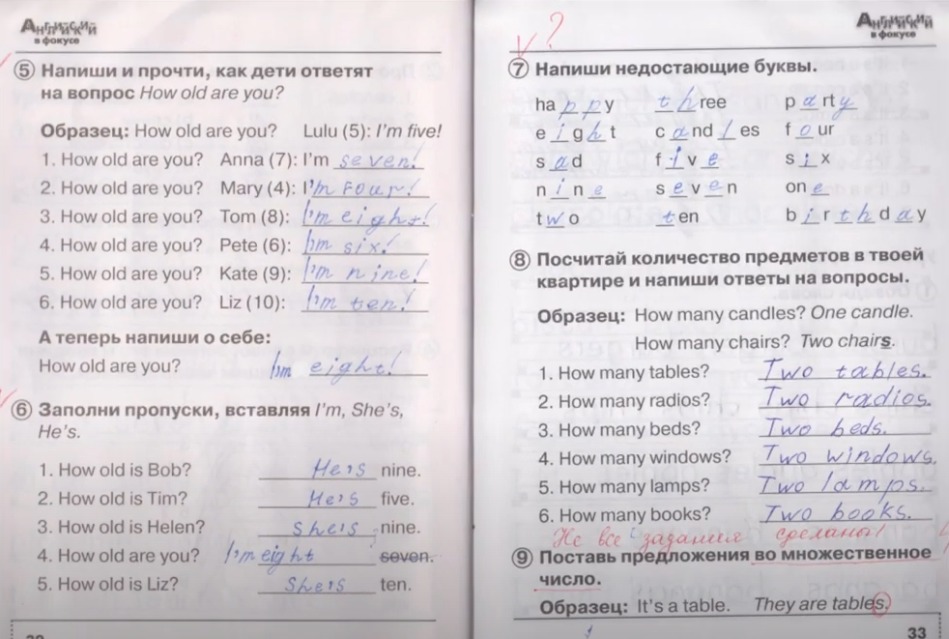 Английский
в фокусе
⑤ Напиши и прочти, как дети ответят
на вопрос How old are you?
Образец: How old are you? Lulu (5): I'm five!
1. How old are you? Anna (7): I'm seven!
2. How old are you? Mary (4): I'm four!
3. How old are you? Tom (8): I'm eight!
4. How old are you? Pete (6): I'm six!
5. How old are you? Kate (9): I'm nine!
6. How old are you? Liz (10): I'm ten!
А теперь напиши о себе:
How old are you? I'm eight!
⑥ Заполни пропуски, вставляя I'm, She's,
He's.
1. How old is Bob? He's nine.
2. How old is Tim? He's five.
3. How old is Helen? She's nine.
4. How old are you? I'm eight seven.
5. How old is Liz? She's ten.
Английский
в фокусе
?
⑦ Напиши недостающие буквы.
happy three party
eight candles four
sad five six
nine seven one
two ten birthday
⑧ Посчитай количество предметов в твоей
квартире и напиши ответы на вопросы.
Образец: How many candles? One candle.
How many chairs? Two chairs.
1. How many tables? Two tables.
2. How many radios? Two radios.
3. How many beds? Two beds.
4. How many windows? Two windows.
5. How many lamps? Two lamps.
6. How many books? Two books.
Не все задания сделаны!
⑨ Поставь предложения во множественное
число.
Образец: It's a table. They are tables.
33